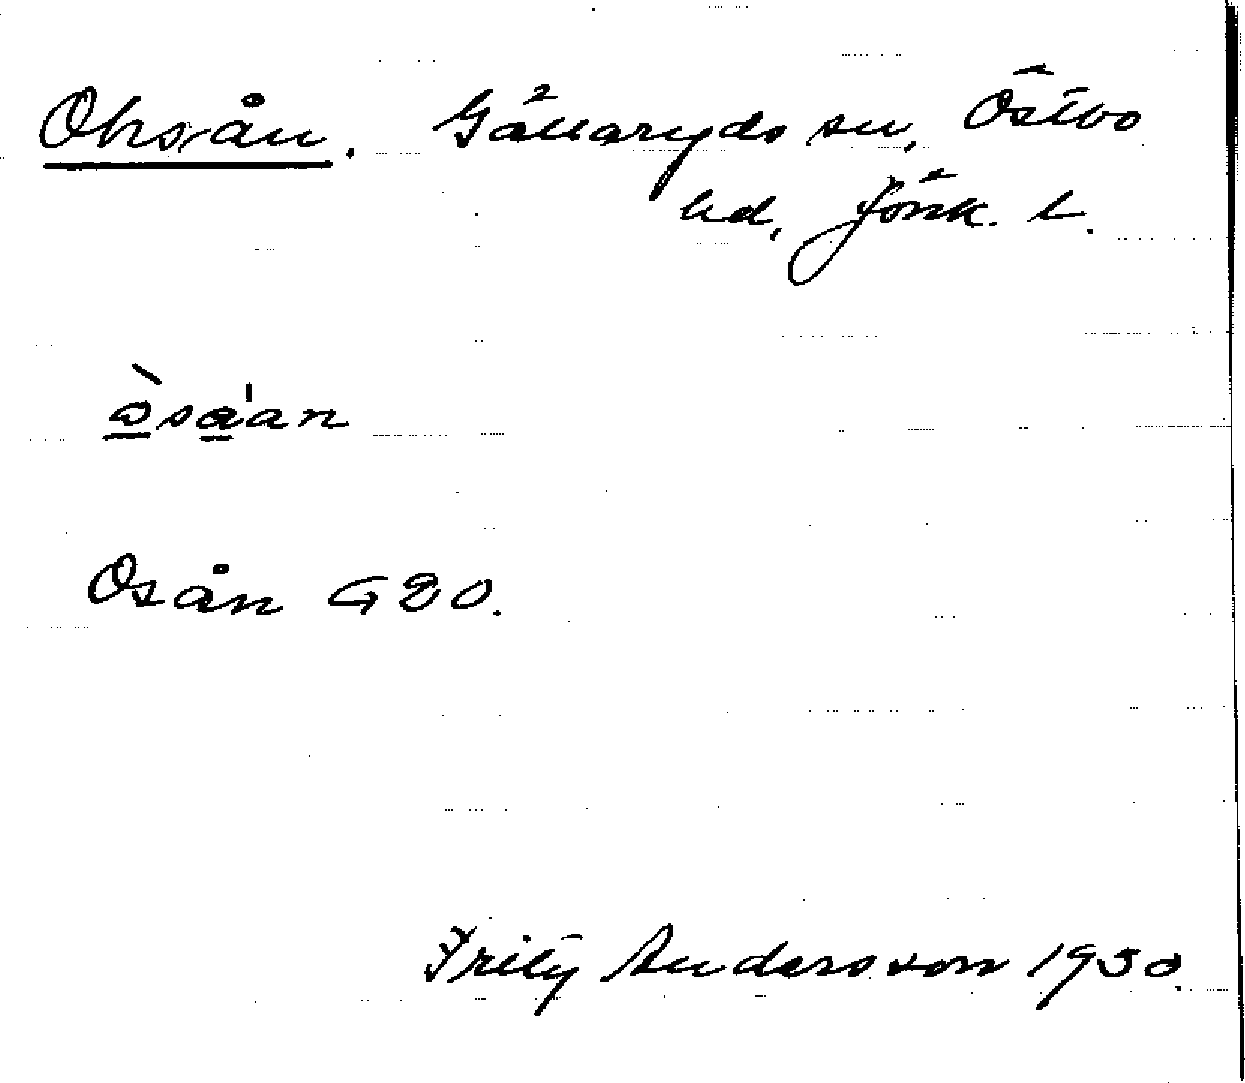 Ohsån. Gällaryds sn, Östbo
hd, Jönk. l.
òsa'an
Osån G20.
Fritz Andersson 1930.